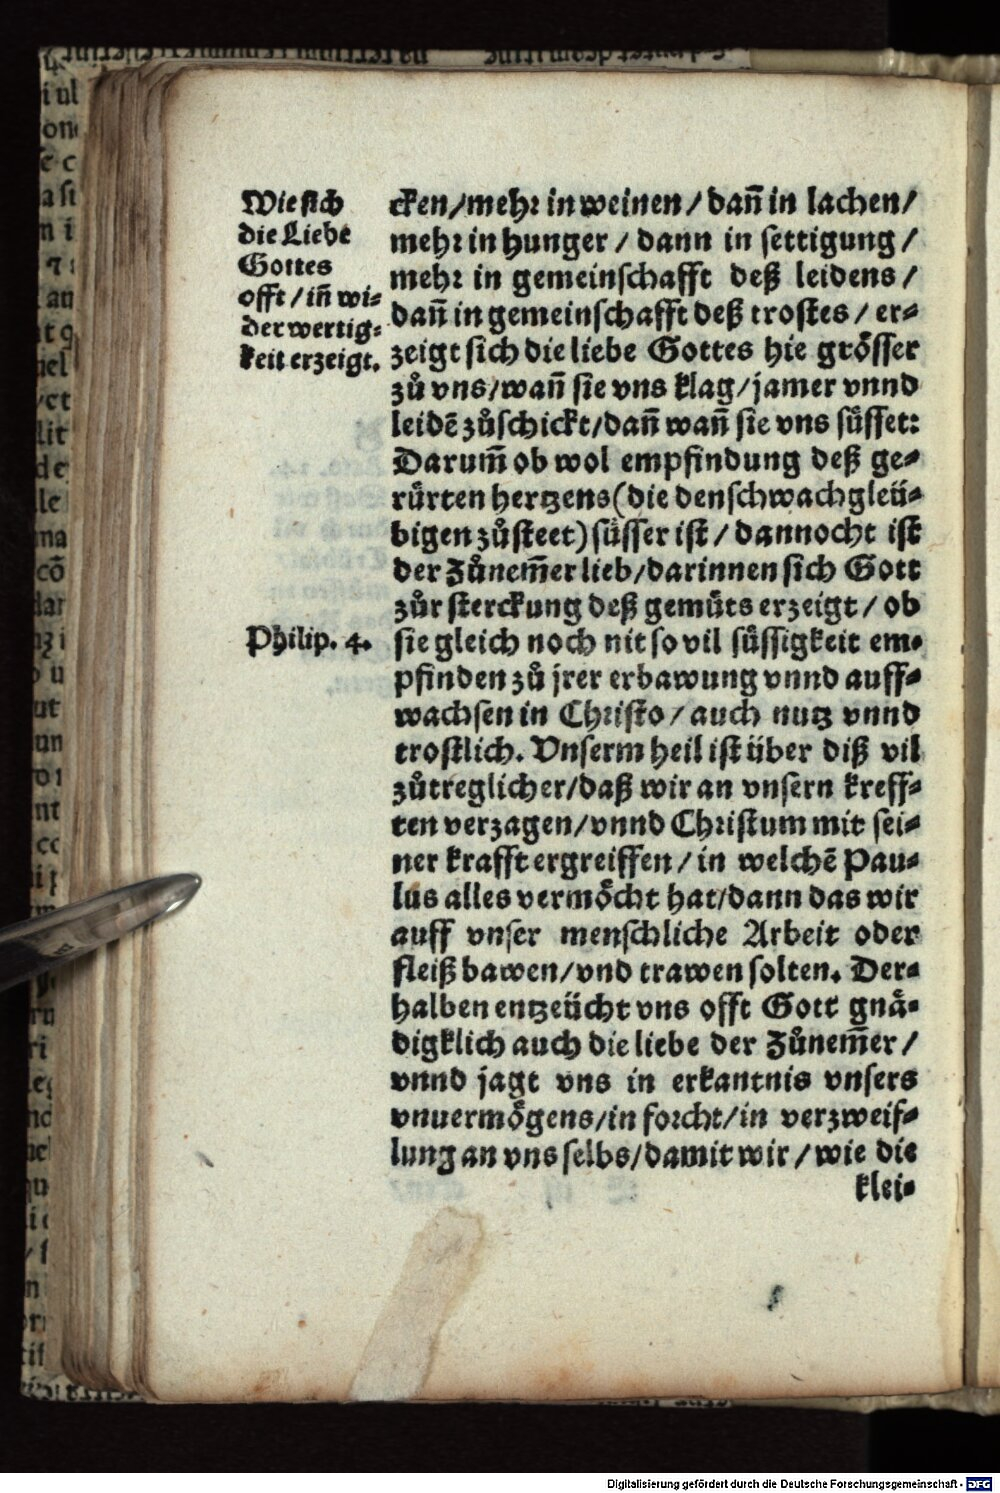 Wie sich
die Liebe
Gottes
offt / iñ wi-
derwertig-
keit erzeigt.
cken / mehr in weinen / dañ in lachen /
mehr in hunger / dann in settigung /
mehr in gemeinschafft deß leidens /
dañ in gemeinschafft deß trostes / er-
zeigt sich die liebe Gottes hie grösser
zů vns / wañ sie vns klag / jamer vnnd
leidẽ zůschickt / dañ wañ sie vns süsset:
Darum̃ ob wol empfindung deß ge-
rürten hertzens (die den schwachgleü-
bigen zůsteet) süsser ist / dannocht ist
der Zůnem̃er lieb / darinnen sich Gott
zůr sterckung deß gemüts erzeigt / ob
Philip. 4.
sie gleich noch nit so vil süssigkeit em-
pfinden zů jrer erbawung vnnd auff-
wachsen in Christo / auch nutz vnnd
trostlich. Vnserm heil ist über diß vil
zůtreglicher / daß wir an vnsern kreff-
ten verzagen / vnnd Christum mit sei-
ner krafft ergreiffen / in welchẽ Pau-
lus alles vermöcht hat / dann das wir
auff vnser menschliche Arbeit oder
fleiß bawen / vnd trawen solten. Der-
halben entzeücht vns offt Gott gnä-
digklich auch die liebe der Zůnem̃er /
vnnd jagt vns in erkantnis vnsers
vnuermögens / in forcht / in verzweif-
lung an vns selbs / damit wir / wie die
klei-
Digitalisierung gefördert durch die Deutsche Forschungsgemeinschaft - DFG